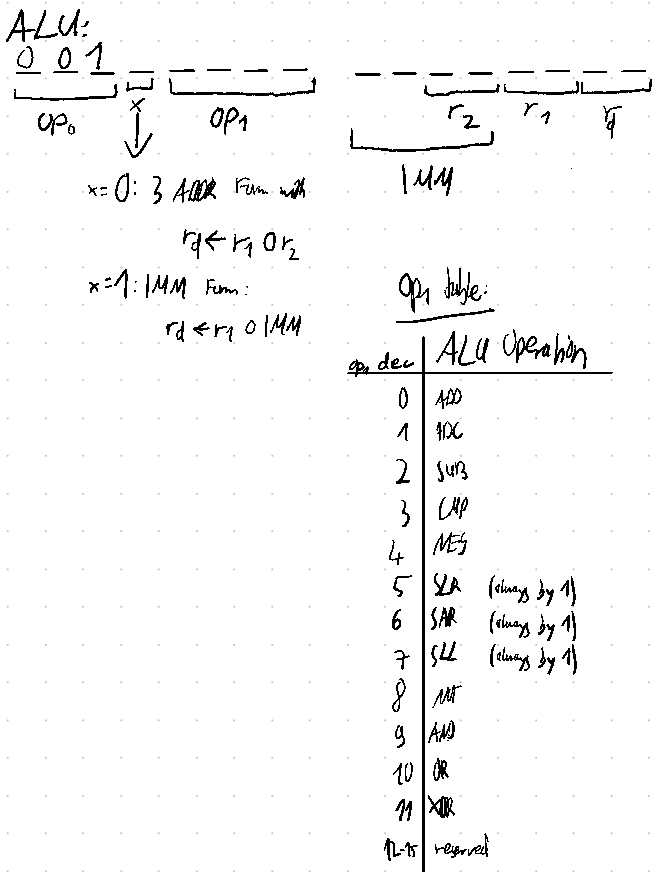 ALU:
0 0 1
op₀ x op₁ r₂ r₁ rd
IMM
x=0: 3 ADDR Form with
rd ← r₁ O r₂
x=1: IMM Form:
rd ← r₁ O IMM
op₁ table:
op₁ dec ALU Operation
0 ADD
1 ADC
2 SUB
3 CMP
4 NEG
5 SLR (always by 1)
6 SAR (always by 1)
7 SLL (always by 1)
8 NOT
9 AND
10 OR
11 XOR
12-15 reserved